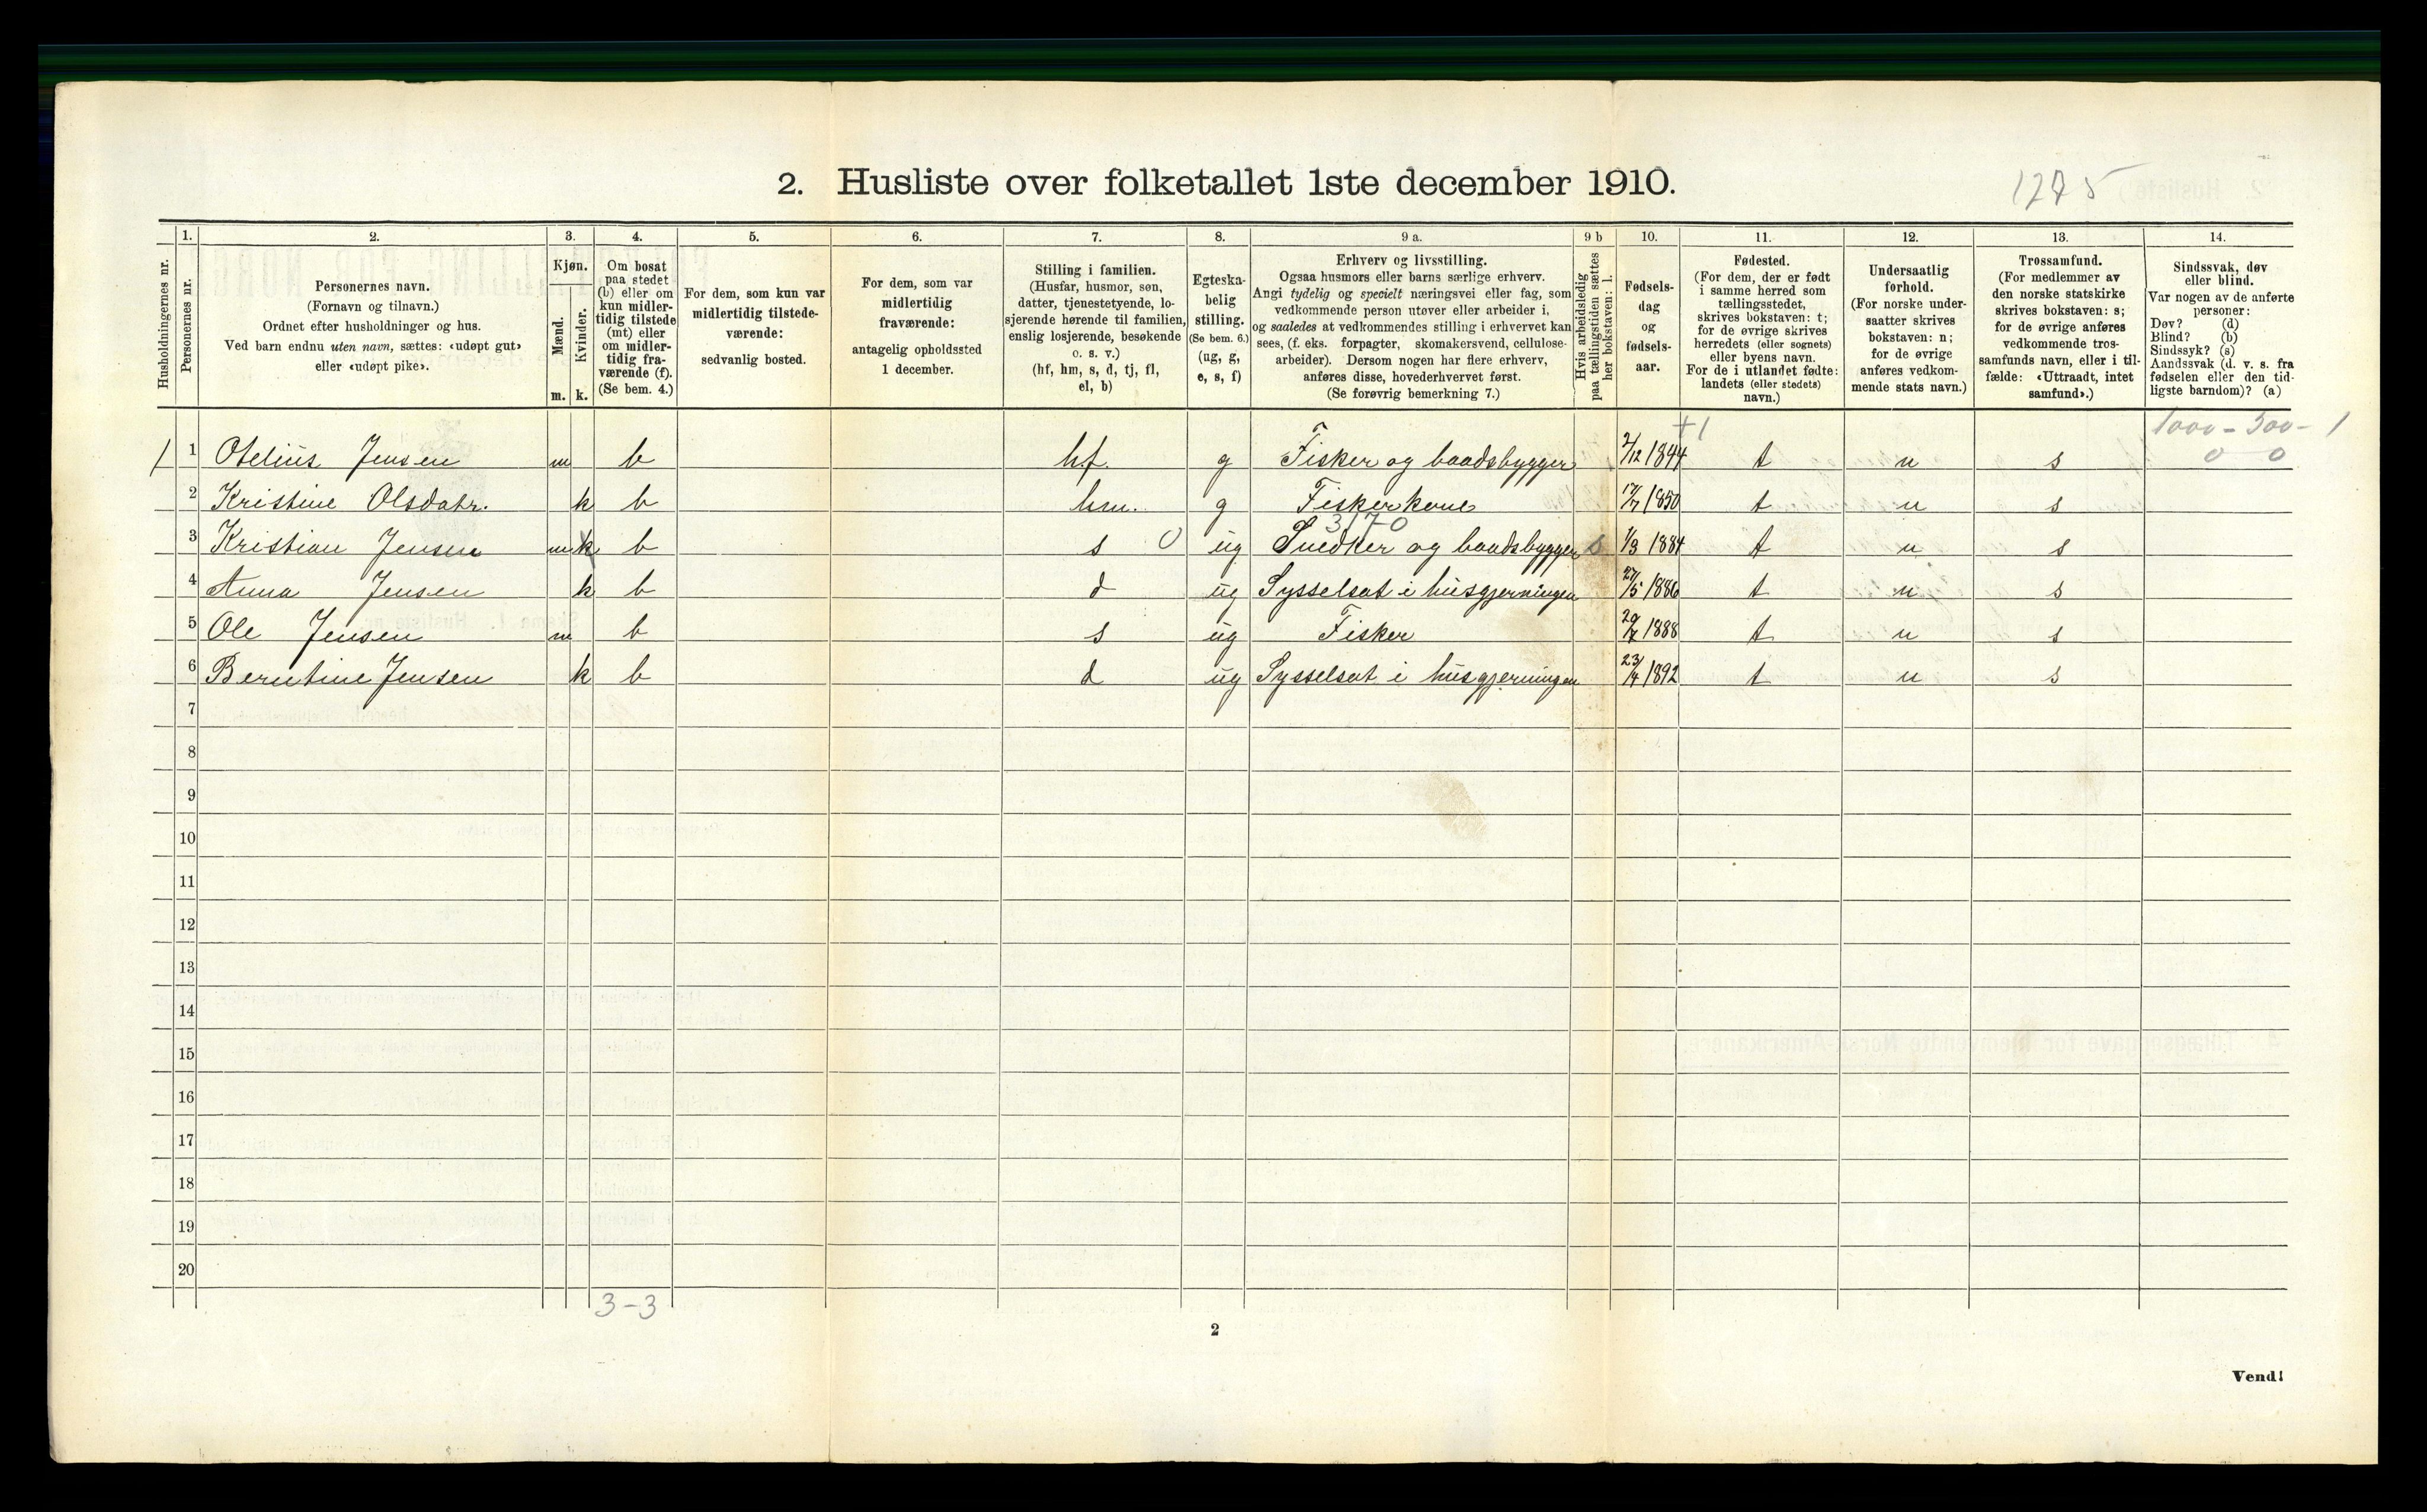 2. Husliste over folketallet 1ste december 1910.
1275
Husholdningernes nr.
1.
Personernes nr.
2.
Personernes navn.
(Fornavn og tilnavn.)
Ordnet efter husholdninger og hus.
Ved barn endnu uten navn, sættes: «udøpt gut»
eller «udøpt pike».
3.
Kjøn.
Mænd.
Kvinder.
m. k.
4.
Om bosat
paa stedet
(b) eller om
kun midler-
tidig tilstede
(mt) eller
om midler-
tidig fra-
værende (f).
(Se bem. 4.)
5.
For dem, som kun var
midlertidig tilstede-
værende:
sedvanlig bosted.
6.
For dem, som var
midlertidig
fraværende:
antagelig opholdssted
1 december.
7.
Stilling i familien.
(Husfar, husmor, søn,
datter, tjenestetyende, lo-
sjerende hørende til familien,
enslig losjerende, besøkende
o. s. v.)
(hf, hm, s, d, tj, fl,
el, b)
8.
Egteska-
belig
stilling.
(Se bem. 6.)
(ug, g,
e, s, f)
9 a.
Erhverv og livsstilling.
Ogsaa husmors eller barns særlige erhverv.
Angi tydelig og specielt næringsvei eller fag, som
vedkommende person utøver eller arbeider i,
og saaledes at vedkommendes stilling i erhvervet kan
sees, (f. eks. forpagter, skomakersvend, cellulose-
arbeider). Dersom nogen har flere erhverv,
anføres disse, hovederhvervet først.
(Se forøvrig bemerkning 7.)
9 b
Hvis arbeidsledig
paa tællingstiden sættes
her bokstaven: l.
10.
Fødsels-
dag
og
fødsels-
aar.
11.
Fødested.
(For dem, der er født
i samme herred som
tællingsstedet,
skrives bokstaven: t;
for de øvrige skrives
herredets (eller sognets)
eller byens navn.
For de i utlandet fødte:
landets (eller stedets)
navn.)
12.
Undersaatlig
forhold.
(For norske under-
saatter skrives
bokstaven: n;
for de øvrige
anføres vedkom-
mende stats navn.)
13.
Trossamfund.
(For medlemmer av
den norske statskirke
skrives bokstaven: s;
for de øvrige anføres
vedkommende tros-
samfunds navn, eller i til-
fælde: «Uttraadt, intet
samfund».)
14.
Sindssvak, døv
eller blind.
Var nogen av de anførte
personer:
Døv? (d)
Blind? (b)
Sindssyk? (s)
Aandssvak (d. v. s. fra
fødselen eller den tid-
ligste barndom)? (a)
+1 1000 - 300 - 1
1 1 Otelius Jensen m b hf. g Fisker og baadsbygger 2/12 1844 t n s 0 0
2 Kristine Olsdatr. k b hm. g Fiskerkone 17/7 1850 t n s
3170
3 Kristian Jensen m k b s 0 ug Snedker og baadsbygger s 1/3 1884 t n s
4 Anna Jensen k b d ug Sysselsat i husgjerningen 27/5 1886 t n s
5 Ole Jensen m b s ug Fisker 29/7 1888 t n s
6 Berntine Jensen k b d ug Sysselsat i husgjerningen 23/4 1892 t n s
7
8
9
10
11
12
13
14
15
16
17
18
19
20
3-3
2
Vend!